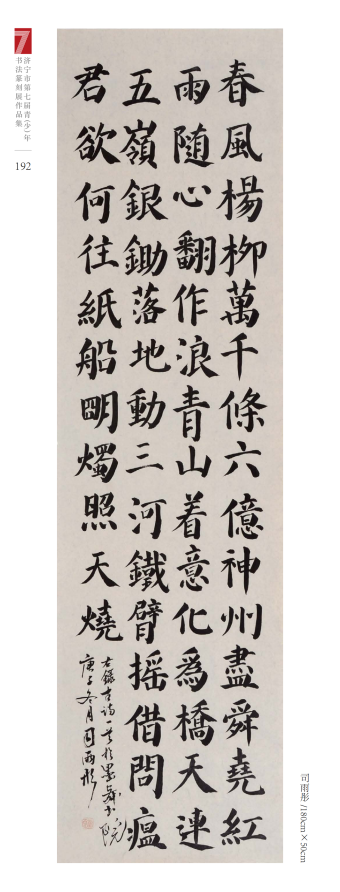 7
济宁市第七届青(少)年
书法篆刻展作品集
192
春風楊柳萬千條六億神州盡舜堯紅
雨随心翻作浪青山着意化為橋天連
五嶺銀鋤落地動三河鐵臂摇借問瘟
君欲何往紙船明燭照天燒
右錄古詩一首於墨舞書院
庚子冬月司雨彤
司雨彤 /180cm×50cm